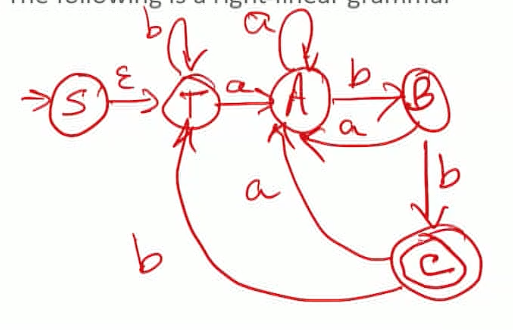 The following is a right-linear grammar
b
a
S
ε
T
a
A
b
B
a
b
a
b
C